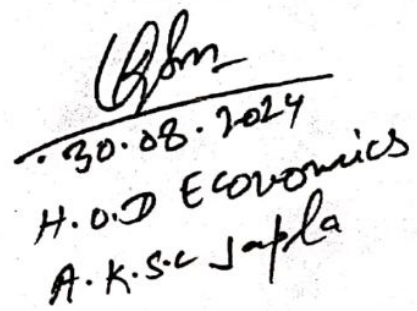 30.08.2024
H.O.D Economics
A.K.S.C Japla